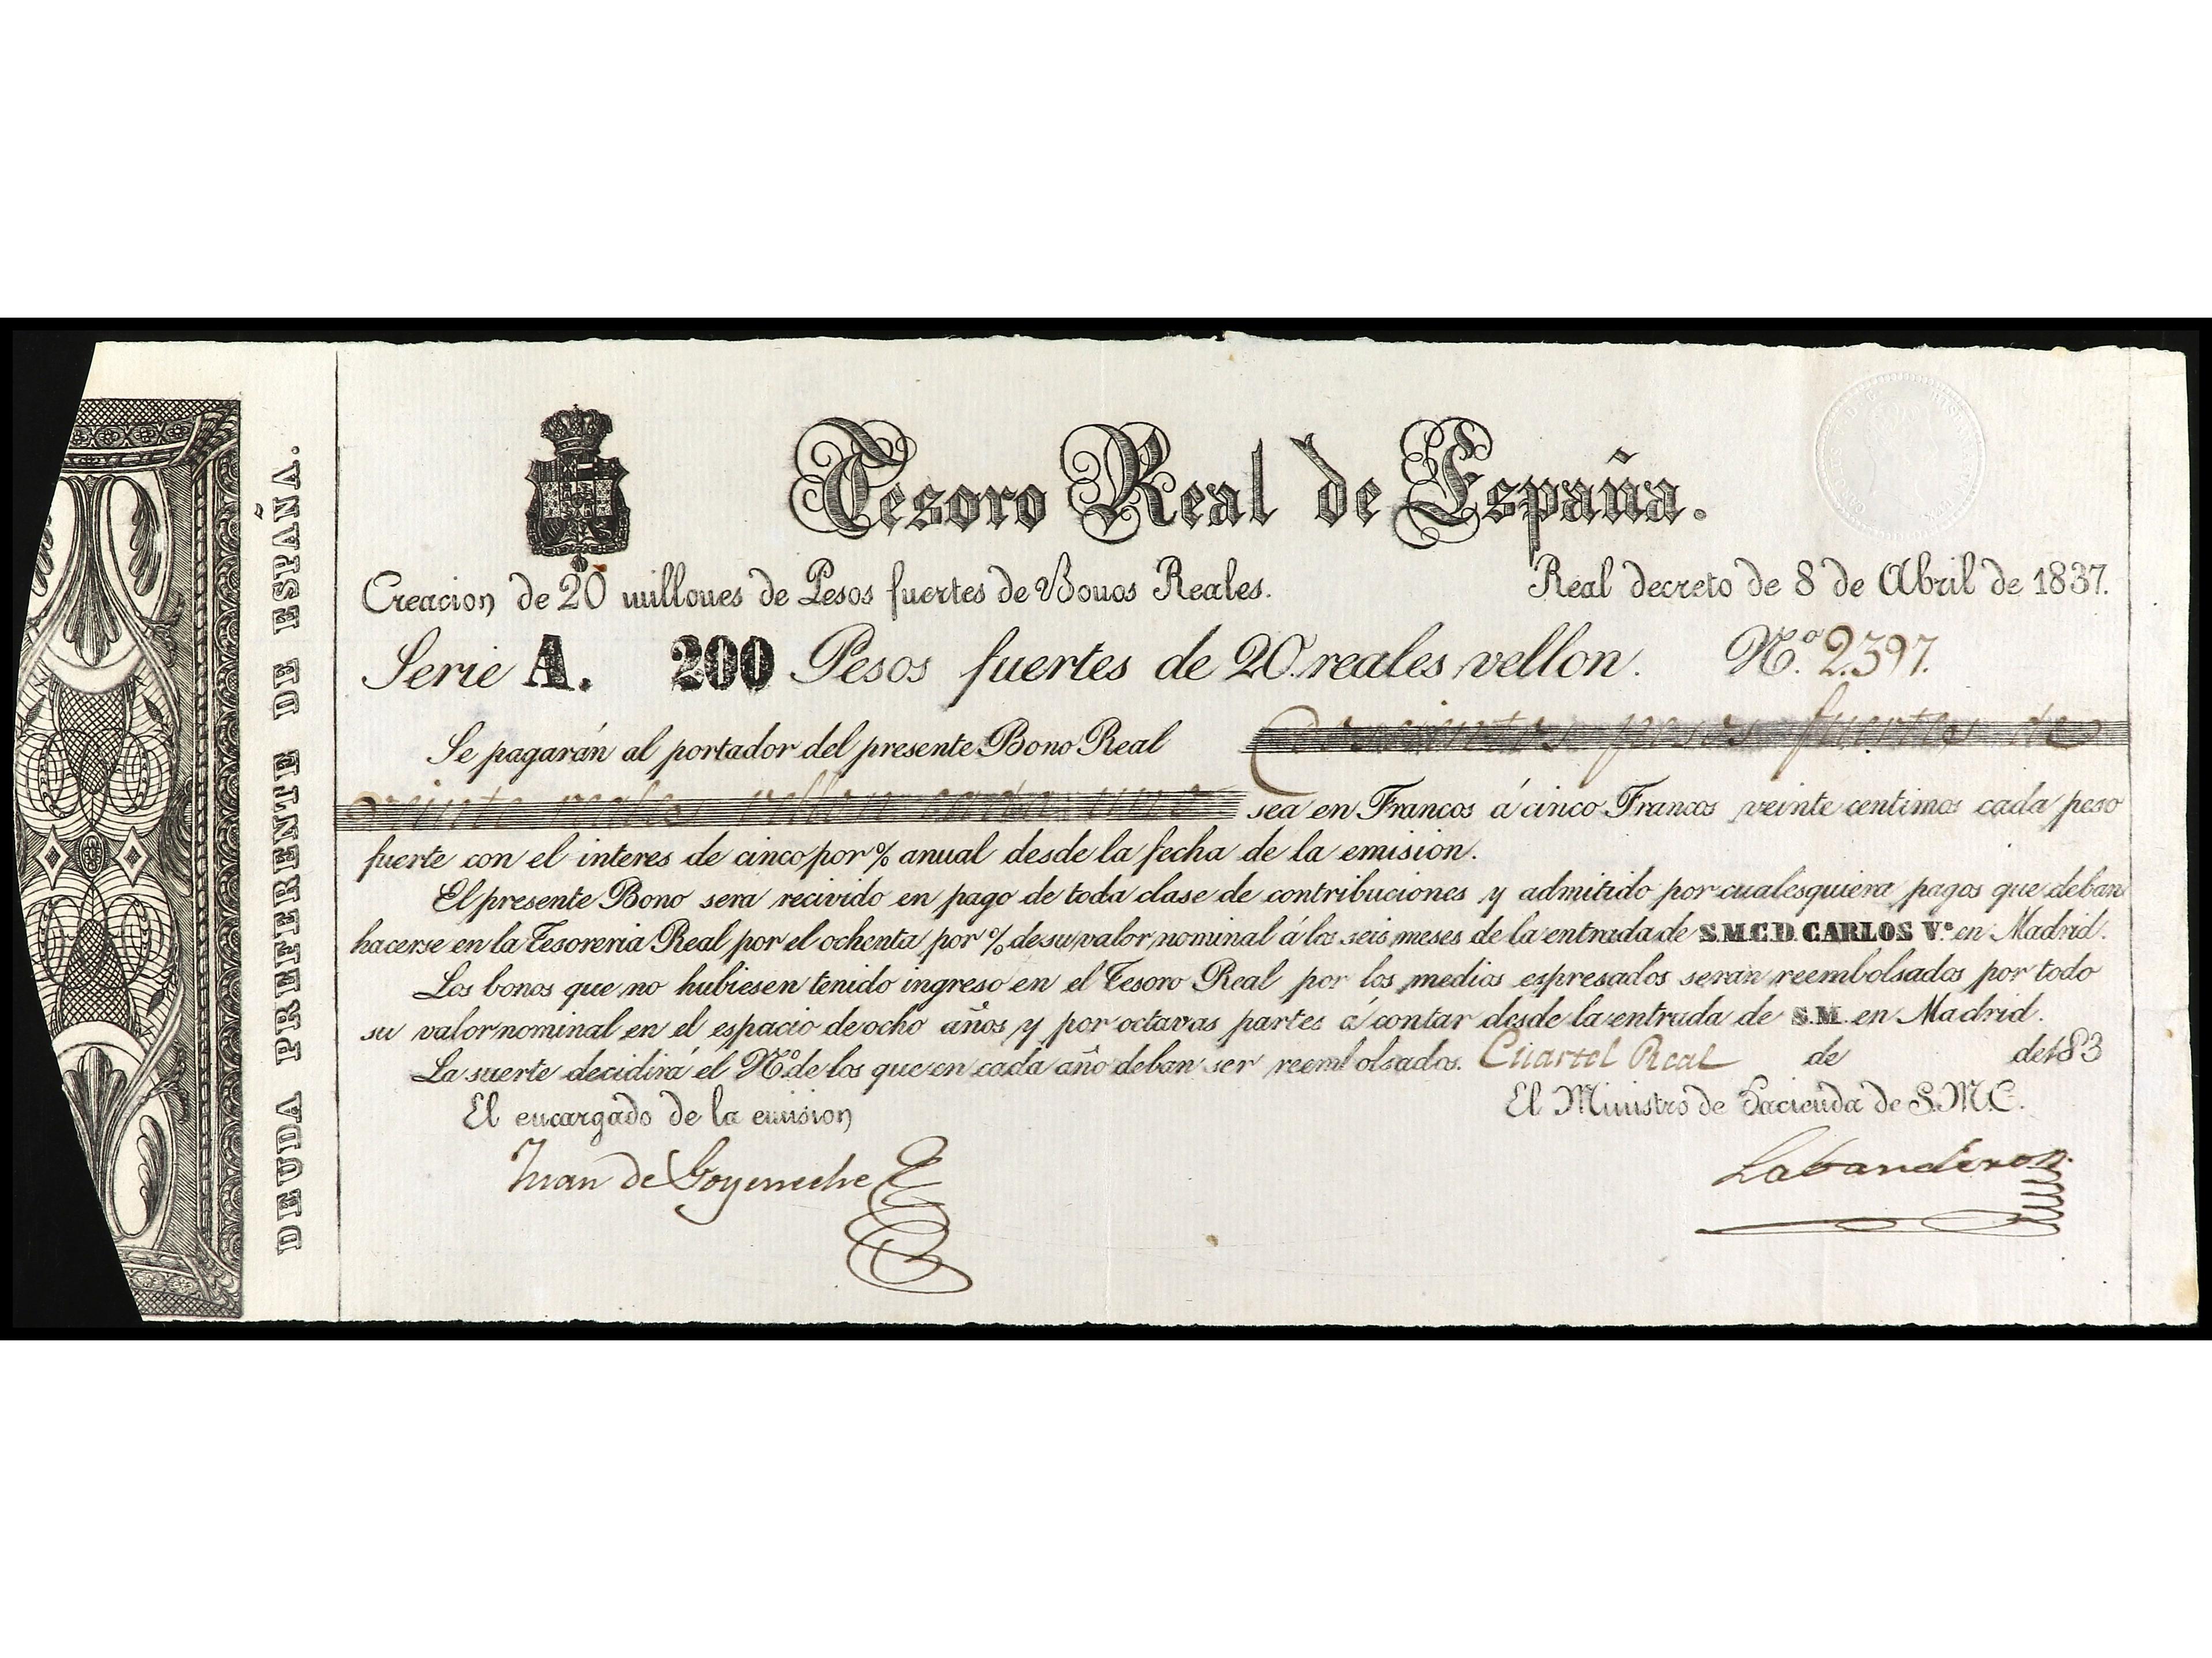 DEUDA PREFERENTE DE ESPAÑA.
Tesoro Real de España.
Creacion de 20 millones de Pesos fuertes de Bonos Reales. Real decreto de 8 de Abril de 1837.
Serie A. 200 Pesos fuertes de 20 reales vellon. Nº. 2.397.
Se pagarán al portador del presente Bono Real Doscientos pesos fuertes de
veinte reales vellon cada uno sea en Francos á cinco Francos veinte centimos cada peso
fuerte con el interes de cinco por % anual desde la fecha de la emision.
El presente Bono sera recivido en pago de toda clase de contribuciones y admitido por cualesquiera pagos que deban
hacerse en la Tesoreria Real por el ochenta por % de su valor nominal á los seis meses de la entrada de S.M.C.D. CARLOS Vº. en Madrid.
Los bonos que no hubiesen tenido ingreso en el Tesoro Real por los medios espresados serán reembolsados por todo
su valor nominal en el espacio de ocho años y por octavas partes á contar desde la entrada de S.M. en Madrid.
La suerte decidirá el Nº. de los que en cada año deban ser reembolsados. Cuartel Real de de 183
El encargado de la emision El Ministro de Hacienda de S.M.C.
Juan de Goyeneche Labanderos